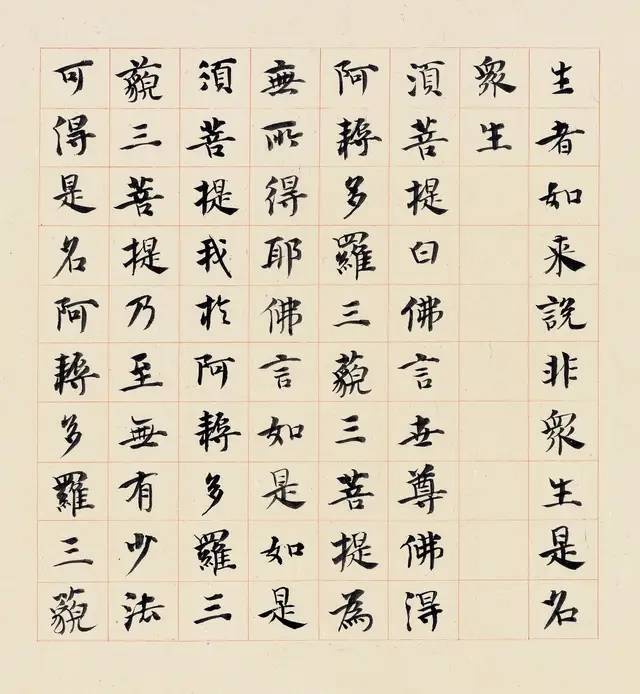 生者如来說非衆生是名
衆生
須菩提白佛言世尊佛得
阿耨多羅三藐三菩提為
無所得耶佛言如是如是
須菩提我於阿耨多羅三
藐三菩提乃至無有少法
可得是名阿耨多羅三藐